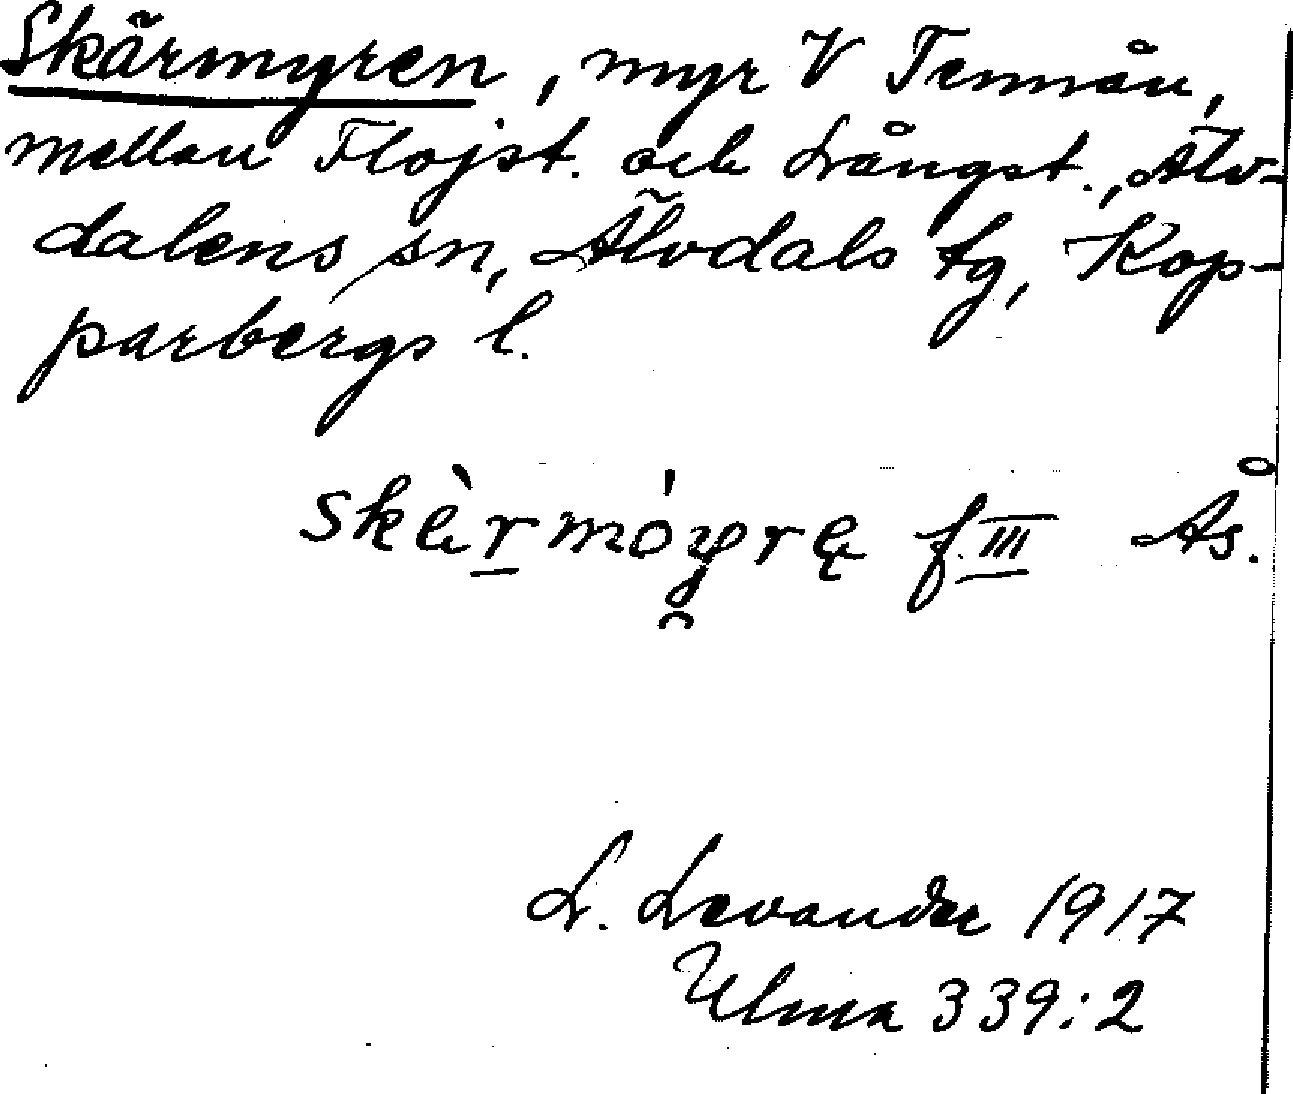 Skärmyren, myr V Tennån,
mellan Flojst. och Långst., Älv-
dalens sn, Älvdals tg, Kop-
parbergs l.
f. III Ås.
L. Levander 1917
Ulma 339:2